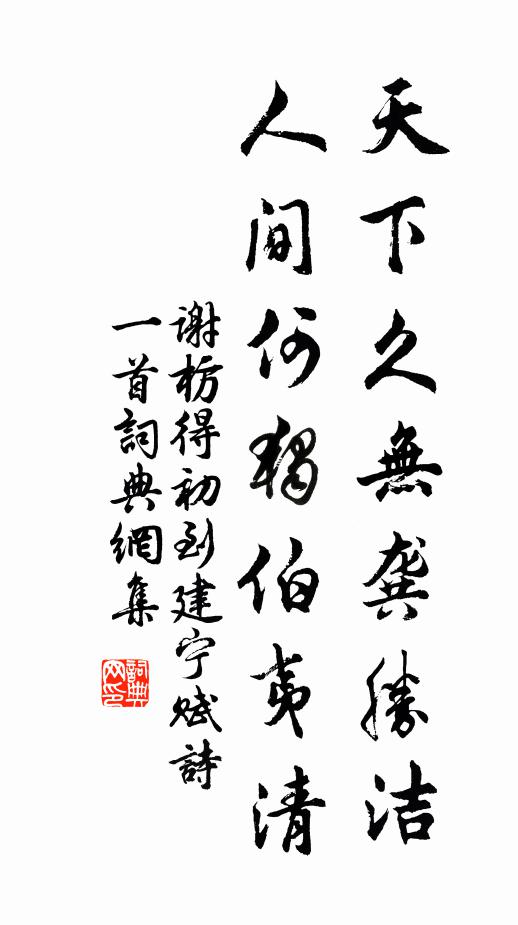 天下久無龔勝洁
人間何獨伯夷清
谢枋得初到建宁赋詩
一首詞典網集
詞典网印